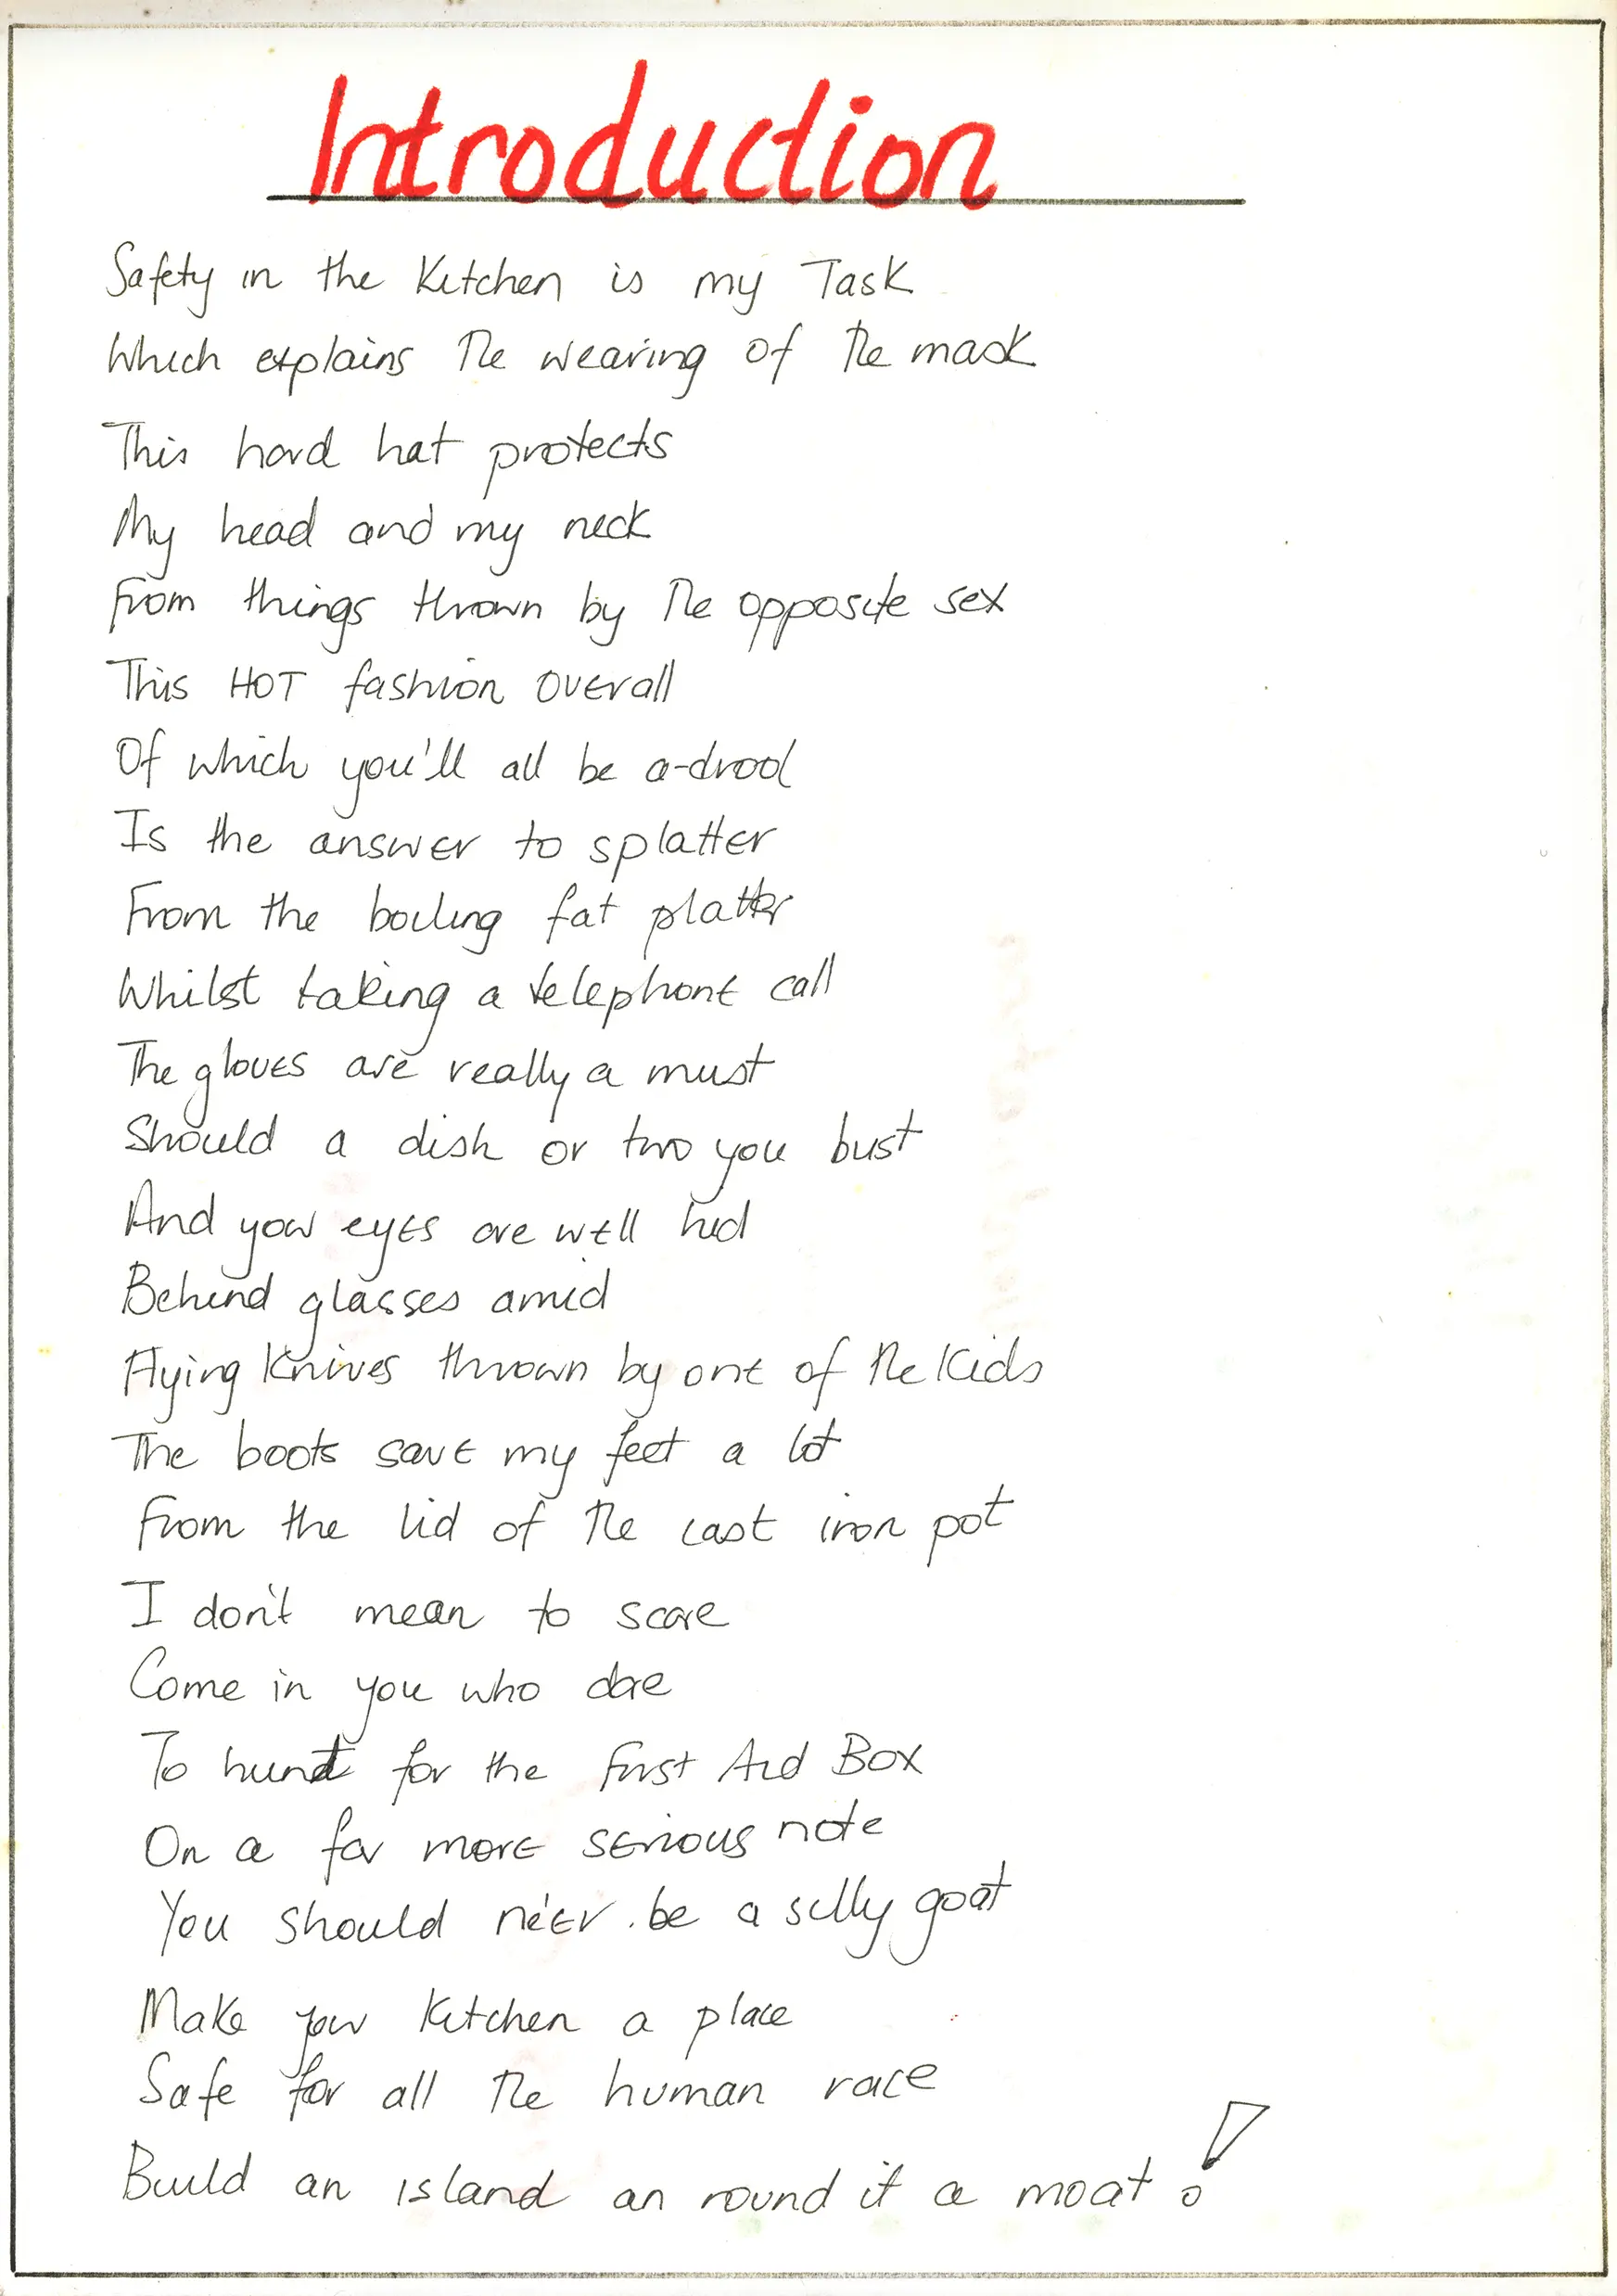 Introduction
Safety in the Kitchen is my Task
Which explains the wearing of the mask
This hard hat protects
My head and my neck
From things thrown by the opposite sex
This HOT fashion overall
Of which you'll all be a-drool
Is the answer to splatter
From the boiling fat platter
Whilst taking a telephone call
The gloves are really a must
Should a dish or two you bust
And your eyes are well hid
Behind glasses amid
Flying Knives thrown by one of the Kids
The boots save my feet a lot
From the lid of the cast iron pot
I don't mean to scare
Come in you who dare
To hunt for the First Aid Box
On a far more serious note
You should né'er be a silly goat
Make your Kitchen a place
Safe for all the human race
Build an island an round it a moat!